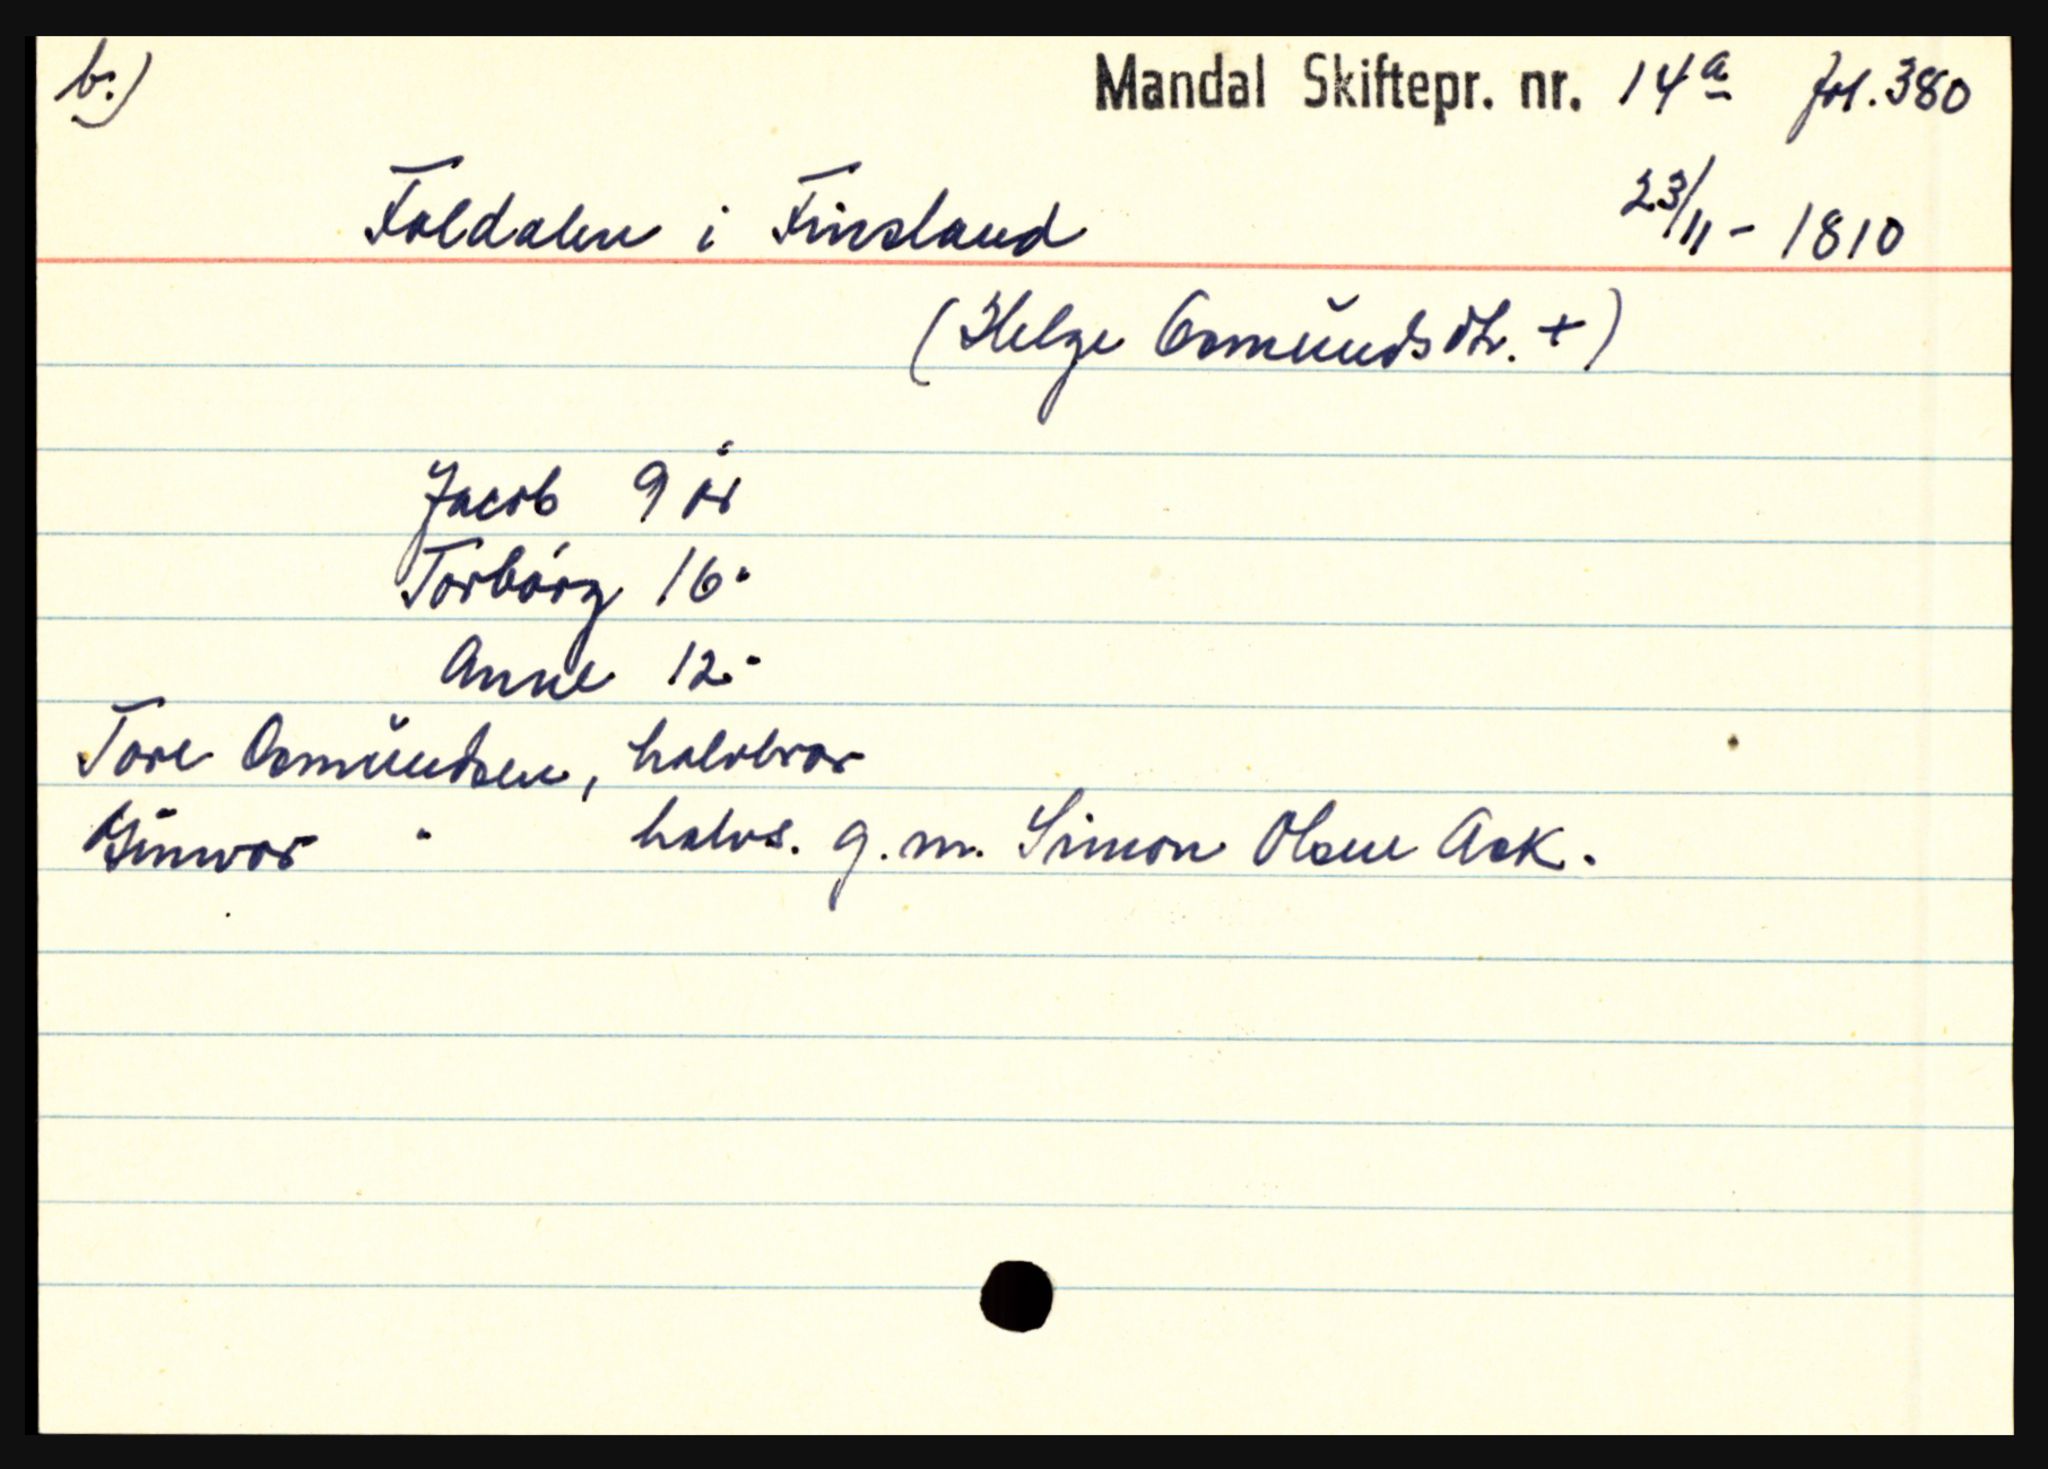 b.) Mandal Skiftepr. nr. 14a fol. 380
Foldalen i Finsland 23/11 - 1810
(Helge Osmundsdtr. +)
Jacob 9 år
Torborg 16 "
Anne 12 "
Tore Osmundsen, halvbror
Gunvor " halvs. g. m. Simon Olsen Ask.